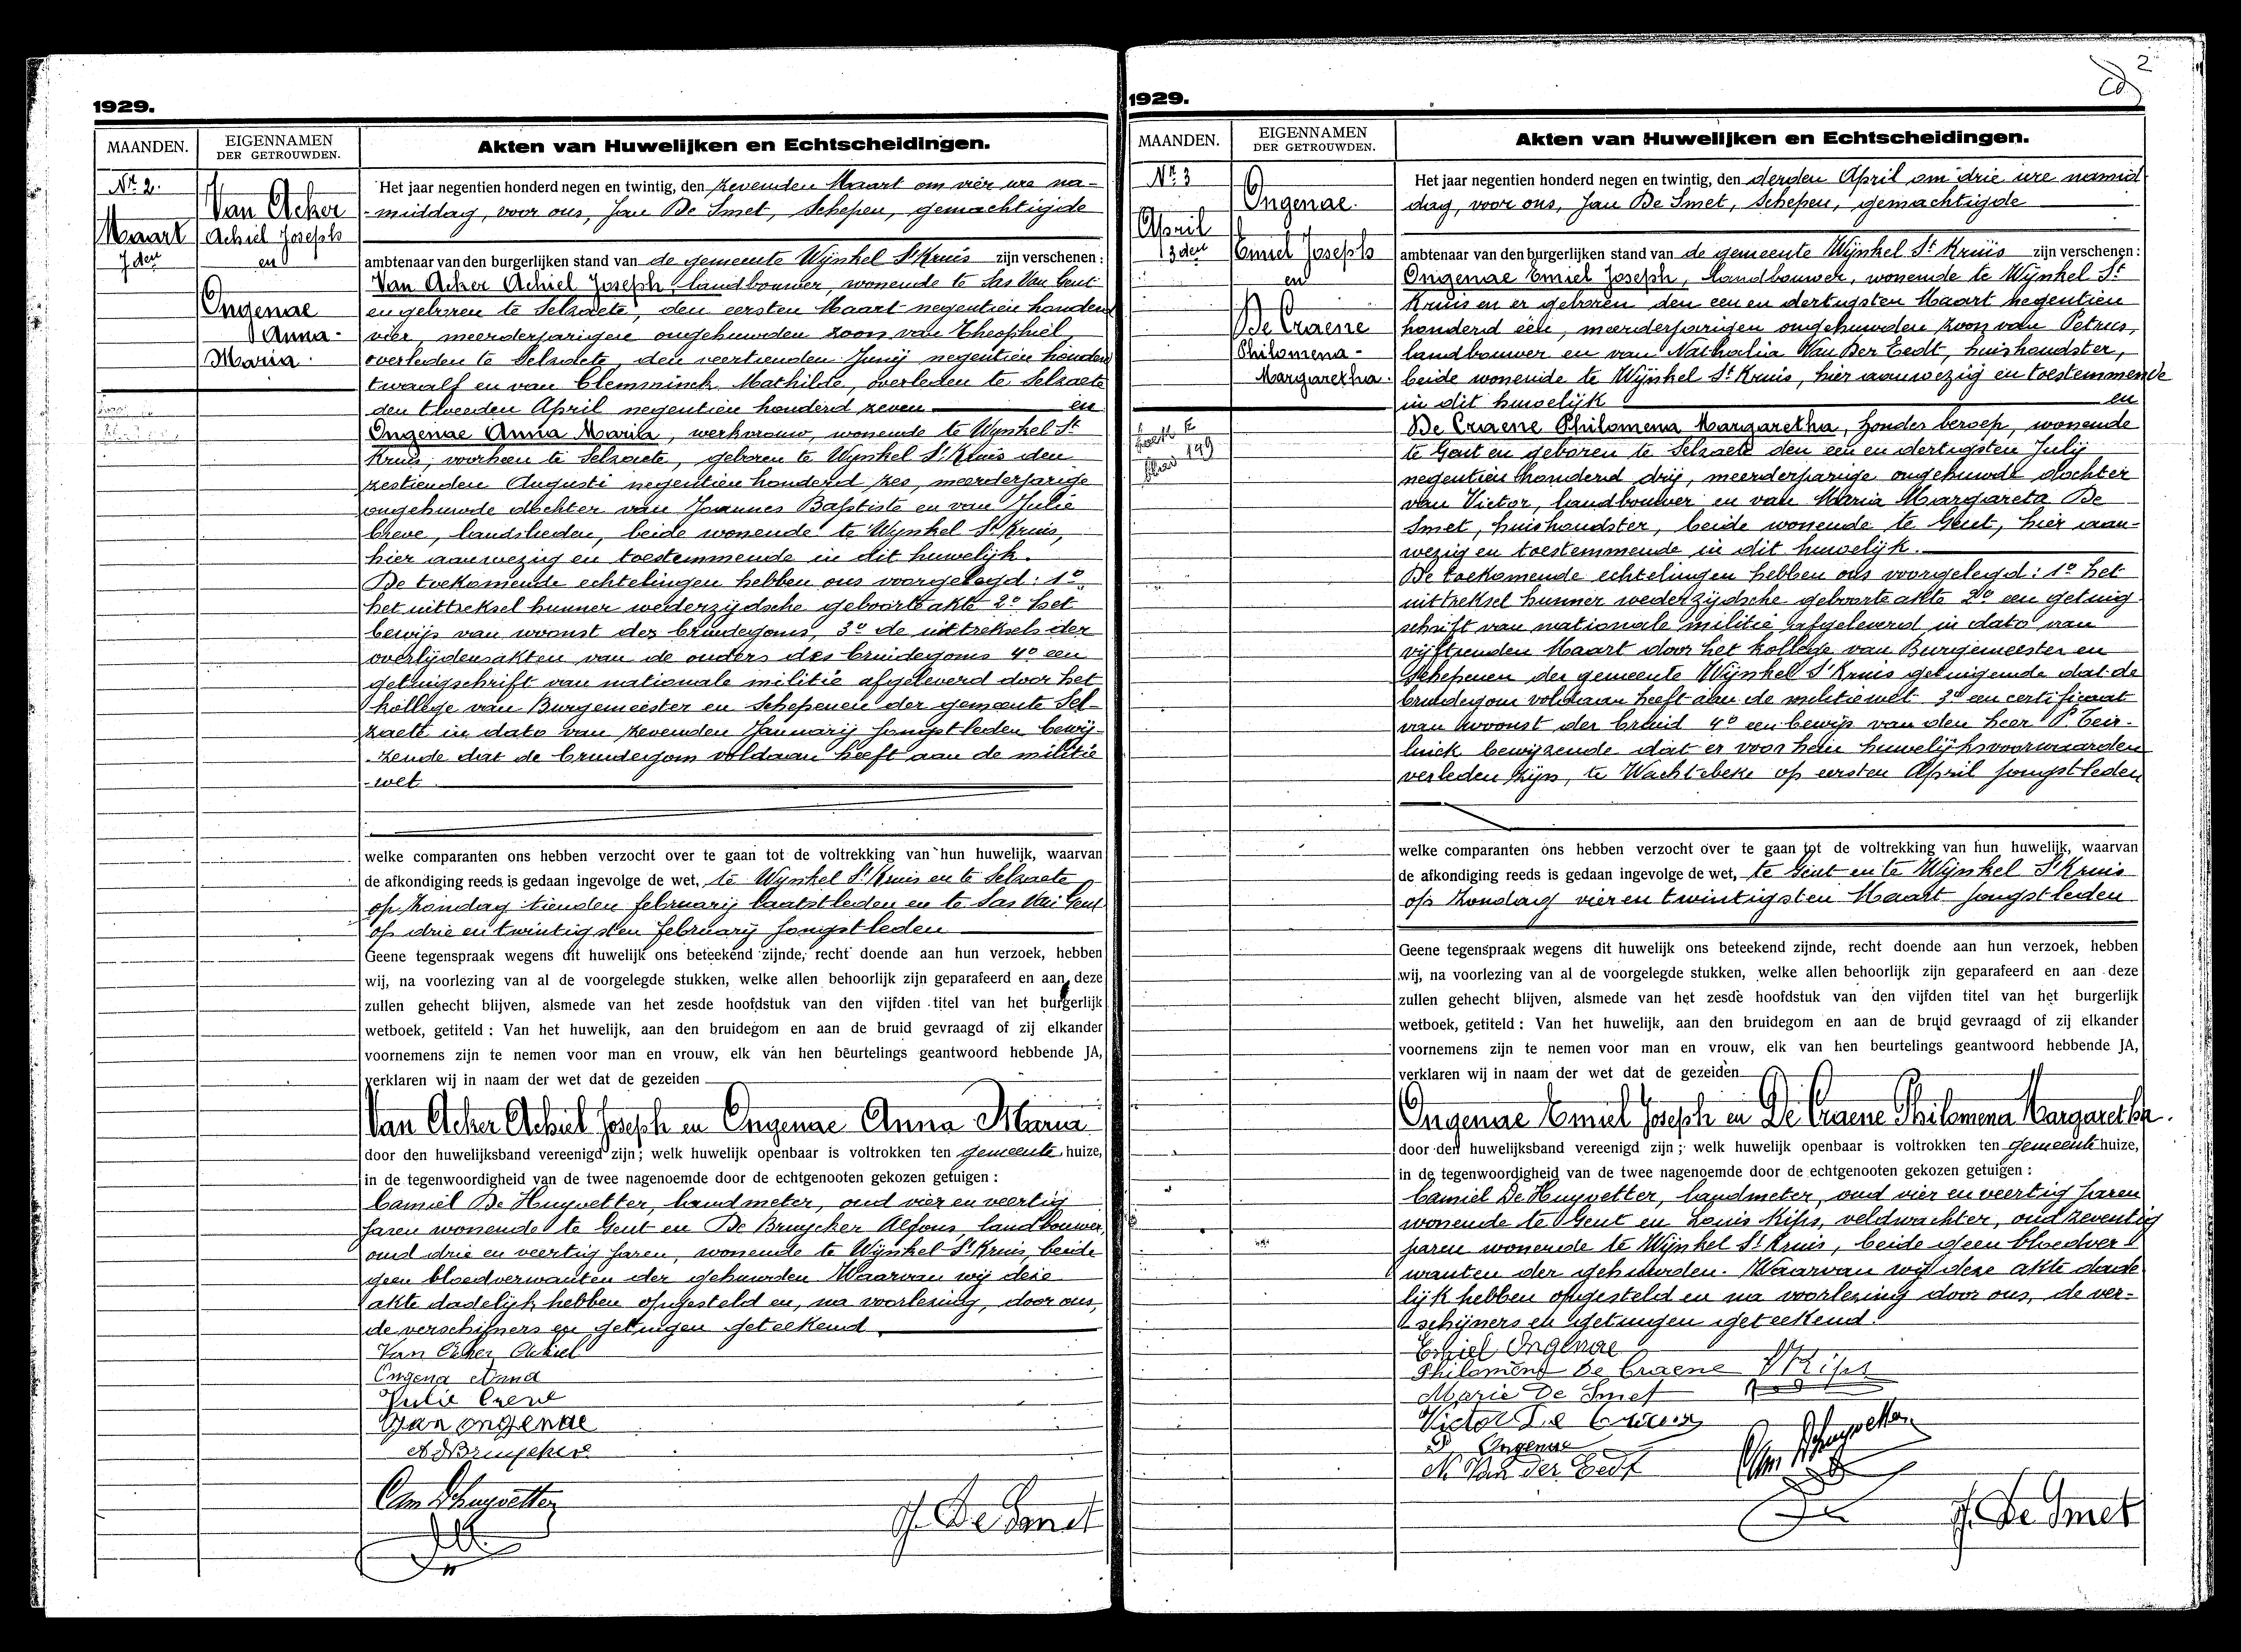 1929.
MAANDEN.
EIGENNAMEN
DER GETROUWDEN.
Akten van Huwelijken en Echtscheidingen.
Nr. 2.
Maart
7den
Van Acker
Achiel Joseph
en
Ongenae
Anna-
Maria.
Het jaar negentien honderd negen en twintig, den zevenden Maart om vier ure na-
-middag, voor ons, Jan De Smet, Schepen, gemachtigde
ambtenaar van den burgerlijken stand van de gemeente Wijnkel St Kruis zijn verschenen:
Van Acker Achiel Joseph, landbouwer, wonende te Sas Van Gent
en geboren te Selzaete, den eersten Maart negentien honderd
vier, meerderjarigen ongehuwden zoon van Theophiel
overleden te Selzaete, den veertienden Junij negentien honderd
twaalf en van Clemminck Mathilde, overleden te Selzaete
den tweeden April negentien honderd zeven en
Ongenae Anna Maria, werkvrouw, wonende te Wynkel St
Kruis, voorheen te Selzaete, geboren te Wynkel St Kruis den
zestienden Augusti negentien honderd zes, meerderjarige
ongehuwde dochter van Joannes Baptiste en van Julie
Creve, landslieden, beide wonende te Wynkel St Kruis,
hier aanwezig en toestemmende in dit huwelijk.
De toekomende echtelingen hebben ons voorgelegd: 1o
het uittreksel hunner wederzijdsche geboorteakte 2o het
bewijs van woonst des bruidegoms, 3o de uittreksels der
overlijdensakten van de ouders des bruidegoms 4o een
getuigschrift van nationale militie afgeleverd door het
kollege van Burgemeester en Schepenen der gemeente Sel-
zaete in dato van zevenden Januarij jongstleden bewij-
-zende dat de bruidegom voldaan heeft aan de militie
-wet
welke comparanten ons hebben verzocht over te gaan tot de voltrekking van hun huwelijk, waarvan
de afkondiging reeds is gedaan ingevolge de wet, te Wynkel St Kruis en te Selzaete
op Zondag tienden februarij laatstleden en te Sas Van Gent
op drie en twintigsten februarij jongstleden
Geene tegenspraak wegens dit huwelijk ons beteekend zijnde, recht doende aan hun verzoek, hebben
wij, na voorlezing van al de voorgelegde stukken, welke allen behoorlijk zijn geparafeerd en aan deze
zullen gehecht blijven, alsmede van het zesde hoofdstuk van den vijfden titel van het burgerlijk
wetboek, getiteld: Van het huwelijk, aan den bruidegom en aan de bruid gevraagd of zij elkander
voornemens zijn te nemen voor man en vrouw, elk van hen beurtelings geantwoord hebbende JA,
verklaren wij in naam der wet dat de gezeiden
Van Acker Achiel Joseph en Ongenae Anna Maria
door den huwelijksband vereenigd zijn; welk huwelijk openbaar is voltrokken ten gemeente huize,
in de tegenwoordigheid van de twee nagenoemde door de echtgenooten gekozen getuigen:
Camiel De Huyvetter, landmeter, oud vier en veertig
jaren wonende te Gent en De Bruycker Alfons, landbouwer,
oud drie en veertig jaren, wonende te Wijnkel St Kruis, beide
geen bloedverwanten der gehuwden Waarvan wij deze
akte dadelijk hebben opgesteld en, na voorlezing, door ons,
de verschijners en getuigen geteekend
Van Acker Achiel
Ongena Anna
Julie Creve
Jan ongenae
A DBruycker
Cam Dhuyvetter
J. De Smet
1929.
2
MAANDEN.
EIGENNAMEN
DER GETROUWDEN.
Akten van Huwelijken en Echtscheidingen.
Nr. 3
April
13den
Ongenae.
Emiel Joseph
en
De Craene
Philomena-
Margaretha.
199
Het jaar negentien honderd negen en twintig, den derden April om drie ure namid
dag, voor ons, Jan De Smet, Schepen, gemachtigde
ambtenaar van den burgerlijken stand van de gemeente Wijnkel St Kruis zijn verschenen:
Ongenae Emiel Joseph, landbouwer, wonende te Wijnkel St
Kruis en er geboren den een en dertigsten Maart negentien
honderd één, meerderjarigen ongehuwden zoon van Petrus,
landbouwer en van Nathalia Van Der Eedt, huishoudster,
beide wonende te Wijnkel St Kruis, hier aanwezig en toestemmende
in dit huwelijk en
De Craene Philomena Margaretha, zonder beroep, wonende
te Gent en geboren te Selzaete den een en dertigsten Julij
negentien honderd drij, meerderjarige ongehuwde dochter
van Victor, landbouwer en van Maria Margareta De
Smet, huishoudster, beide wonende te Gent, hier aan-
wezig en toestemmende in dit huwelijk.
De toekomende echtelingen hebben ons voorgelegd: 1o het
uittreksel hunner wederzijdsche geboorteakte 2o een getuig
schrift van nationale militie afgeleverd in dato van
vijftienden Maart door het kollege van Burgemeester en
Schepenen der gemeente Wijnkel St Kruis getuigende dat de
bruidegom voldaan heeft aan de militiewet 3o een certificaat
van woonst der bruid 4o een bewijs van den heer P. Teir-
linck bewijzende dat er voor hen huwelijksvoorwaarden
verleden zijn, te Wachtebeke op eersten April jongstleden
welke comparanten ons hebben verzocht over te gaan tot de voltrekking van hun huwelijk, waarvan
de afkondiging reeds is gedaan ingevolge de wet, te Gent en te Wijnkel St Kruis
op Zondag vier en twintigsten Maart jongstleden
Geene tegenspraak wegens dit huwelijk ons beteekend zijnde, recht doende aan hun verzoek, hebben
wij, na voorlezing van al de voorgelegde stukken, welke allen behoorlijk zijn geparafeerd en aan deze
zullen gehecht blijven, alsmede van het zesde hoofdstuk van den vijfden titel van het burgerlijk
wetboek, getiteld: Van het huwelijk, aan den bruidegom en aan de bruid gevraagd of zij elkander
voornemens zijn te nemen voor man en vrouw, elk van hen beurtelings geantwoord hebbende JA,
verklaren wij in naam der wet dat de gezeiden
Ongenae Emiel Joseph en De Craene Philomena Margaretha.
door den huwelijksband vereenigd zijn; welk huwelijk openbaar is voltrokken ten gemeente huize,
in de tegenwoordigheid van de twee nagenoemde door de echtgenooten gekozen getuigen:
Camiel De Huyvetter, landmeter, oud vier en veertig jaren
wonende te Gent en Louis Kips, veldwachter, oud zeventig
jaren wonende te Wijnkel St Kruis, beide geen bloedver
wanten der gehuwden. Waarvan wij deze akte dade
lijk hebben opgesteld en na voorlezing door ons, de ver-
schijners en getuigen geteekend.
Emiel Ongenae
Philomena De Craene
Kips
Marie De Smet
Victor De Craene
P. Ongenae
N. Van der Eedt
Cam Dhuyvetter
J. De Smet